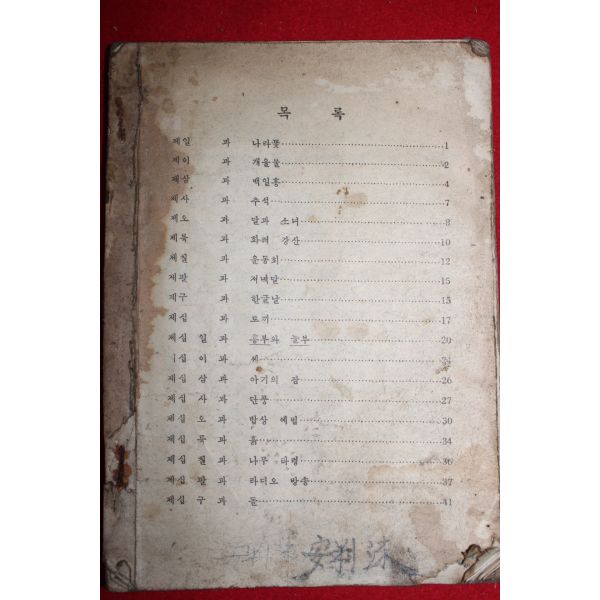 목 록
제일 과 나라꽃 1
제이 과 개울물 2
제삼 과 백일홍 4
제사 과 추석 7
제오 과 달과 소녀 8
제륙 과 화려 강산 10
제칠 과 운동회 12
제팔 과 저녁달 15
제구 과 한글날 15
제십 과 토끼 17
제십 일 과 흥부와 놀부 20
십 이 과
제십 삼 과 아기의 잠 26
제십 사 과 단풍 27
제십 오 과 밥상 예법 30
제십 륙 과 흙 34
제십 칠 과 나무 타령 36
제십 팔 과 라디오 방송 37
제십 구 과 돌 41